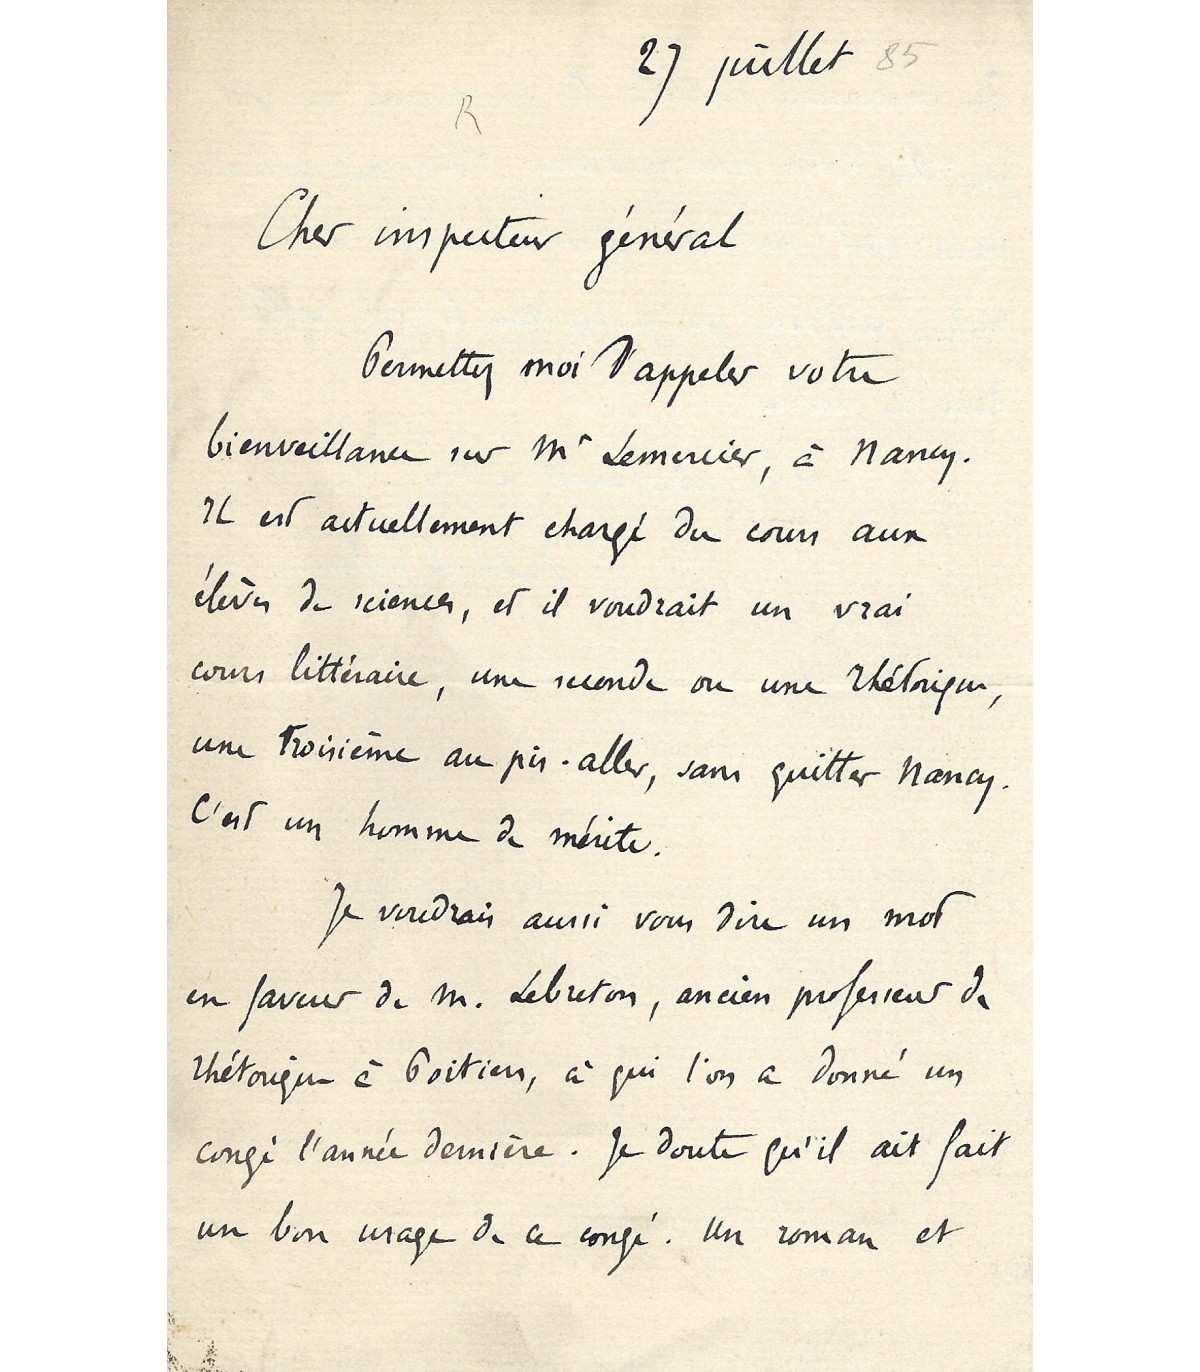 27 juillet 85
R
Cher inspecteur général
Permettez moi d'appeler votre
bienveillance sur Mr Lemercier, à Nancy.
Il est actuellement chargé du cours aux
élèves de sciences, et il voudrait un vrai
cours littéraire, une seconde ou une rhétorique,
une troisième au pis-aller, sans quitter Nancy.
C'est un homme de mérite.
Je voudrais aussi vous dire un mot
en faveur de M. Lebreton, ancien professeur de
rhétorique à Poitiers, à qui l'on a donné un
congé l'année dernière. Je doute qu'il ait fait
un bon usage de ce congé. Un roman et